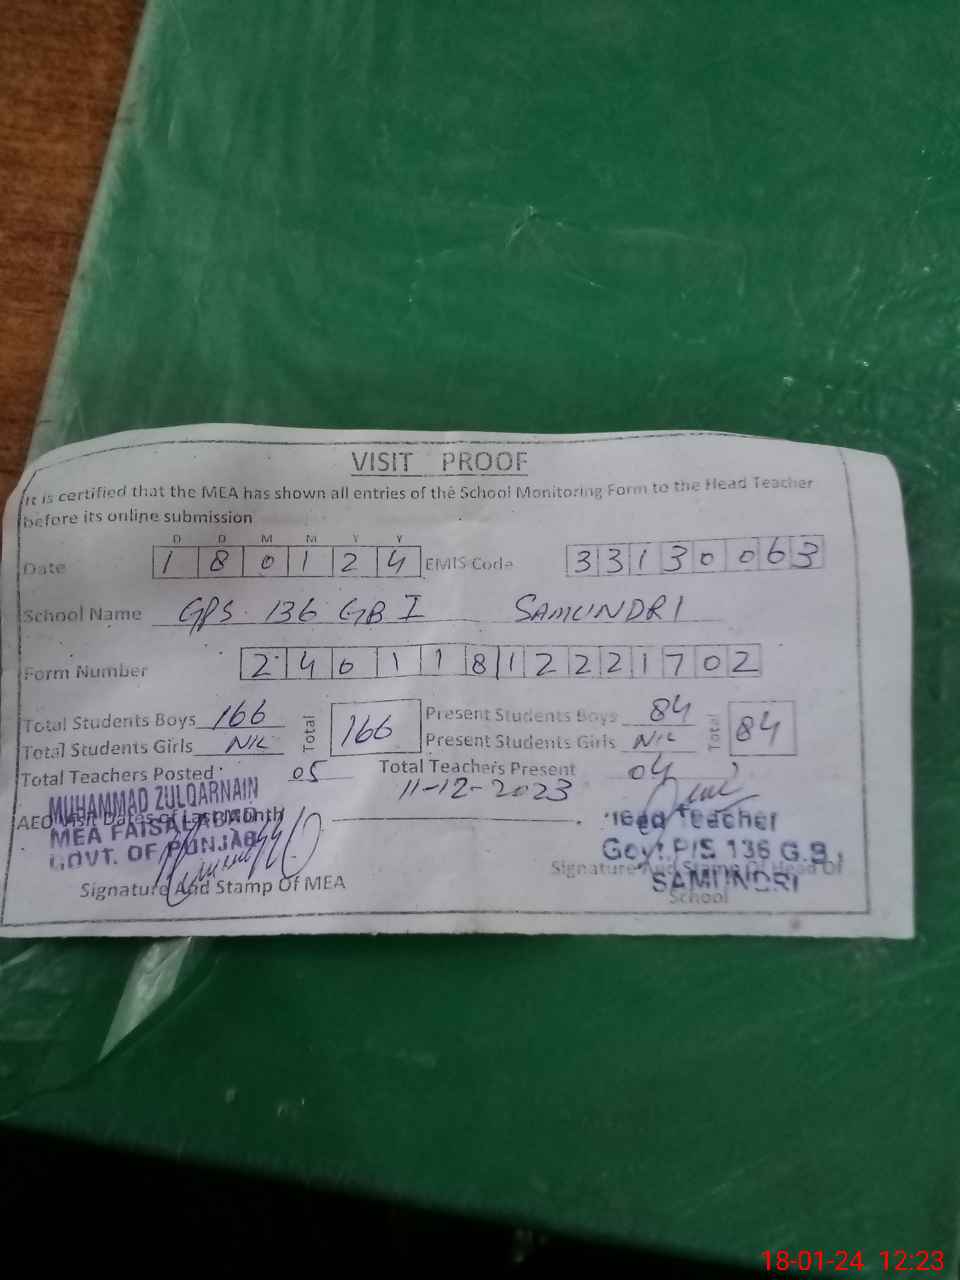 VISIT PROOF
It is certified that the MEA has shown all entries of the School Monitoring Form to the Head Teacher
before its online submission
D D M M Y Y
Date 1 8 0 1 2 4 EMIS Code 3 3 1 3 0 0 6 3
School Name GPS 136 GB I SAMUNDRI
Form Number 2 4 0 1 1 8 1 2 2 2 1 7 0 2
Total Students Boys 166 Total 166 Present Students Boys 84 Total 84
Total Students Girls NIL Present Students Girls NIL
Total Teachers Posted 05 Total Teachers Present 04
11-12-2023
MUHAMMAD ZULQARNAIN
AEO Visit Dates of Last Month
MEA FAISALABAD
GOVT. OF PUNJAB
Head Teacher
Govt. P/S 136 G.B.
SAMUNDRI
Signature And Stamp Of MEA
Signature And Stamp Of Head Of
School
18-01-24 12:23